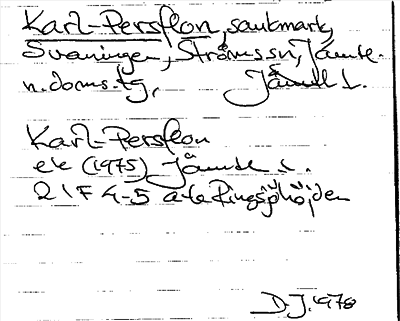 Karl-Persflon, sankmark,
Svaningen, Ströms sn, Jämtl.
n. doms. tg, Jämtl l.
Karl-Persflon
ek (1975) Jämtl l.
21F 4-5 a-te Ringsjöhöjden
D.J. 1978